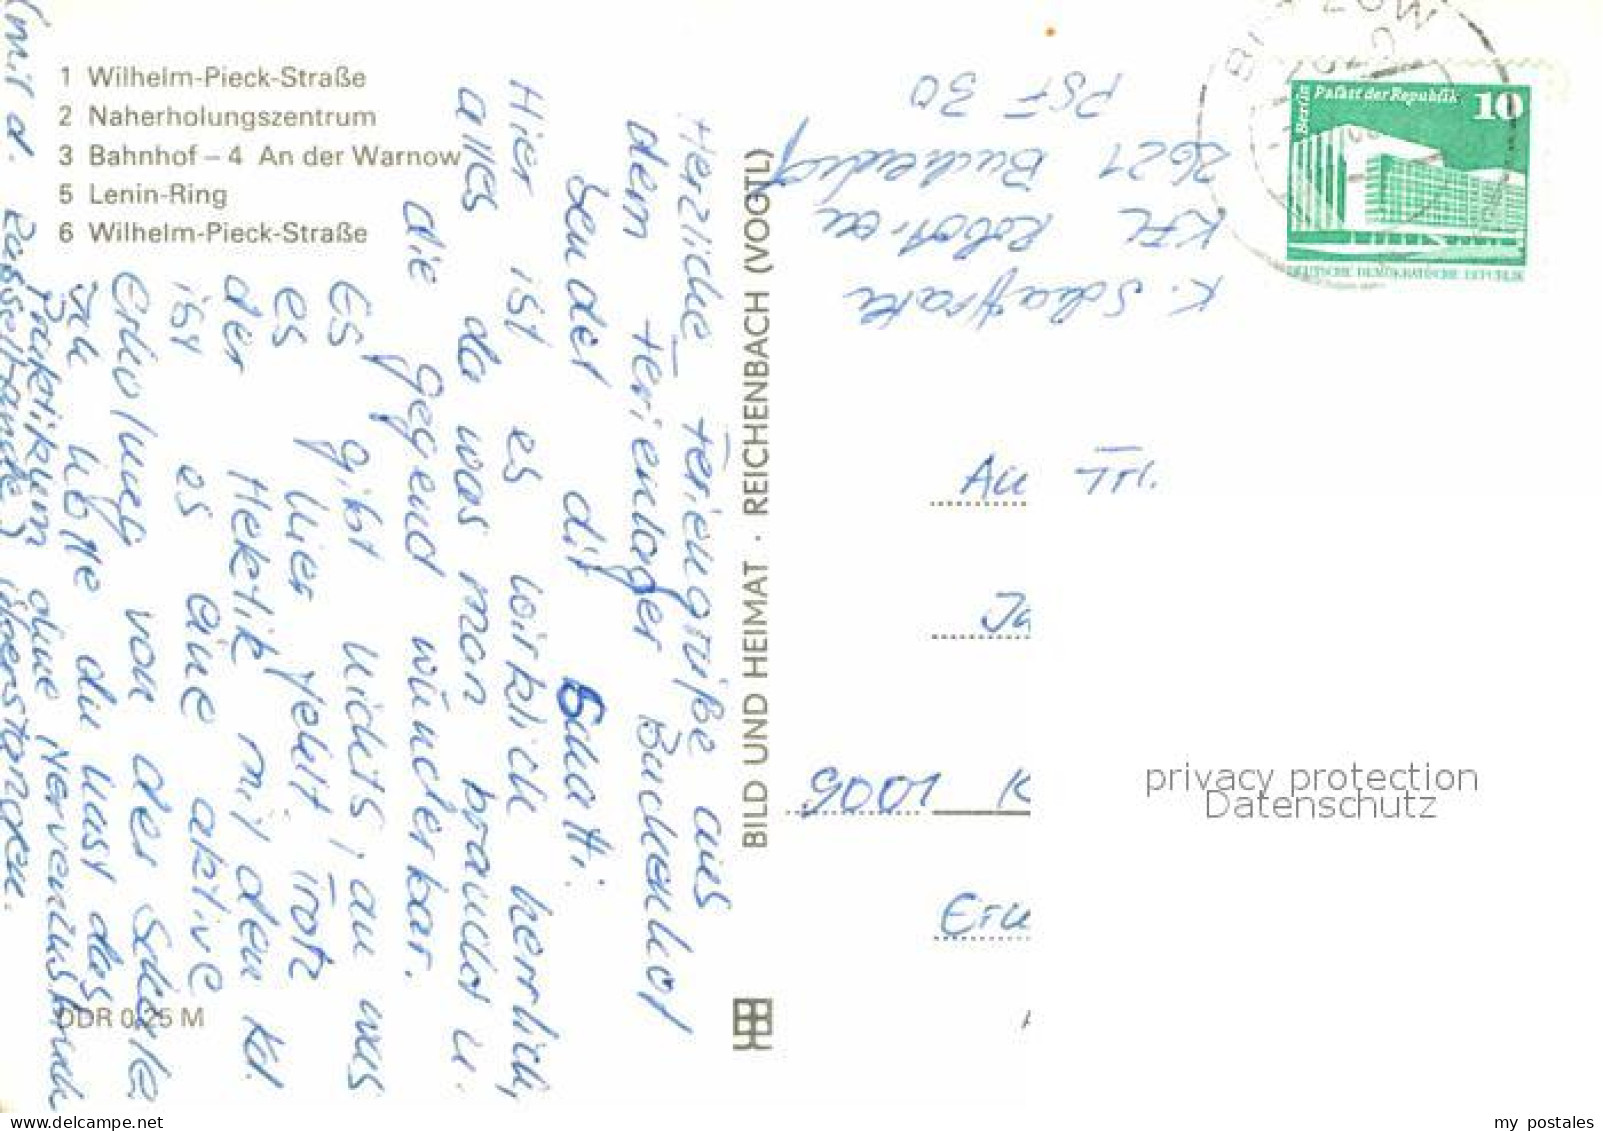 1 Wilhelm-Pieck-Straße
2 Naherholungszentrum
3 Bahnhof – 4 An der Warnow
5 Lenin-Ring
6 Wilhelm-Pieck-Straße
Herzliche Feriengrüße aus
dem Ferienlager Buchenhof
sendet dir
Hier ist es wirklich herrlich,
alles da was man braucht u.
die Gegend wunderbar.
Es gibt nichts, an was
es hier fehlt. Trotz
der Hektik mit den Kd.
ist es eine aktive
Erholung von der Schule
Ich hoffe du hast das
Praktikum ohne Nervenzusbruch
(mit d. überstanden.
DDR 0,25 M
BILD UND HEIMAT · REICHENBACH (VOGTL)
K.
KFL
2621
PSF 30
BÜTZOW
Berlin Palast der Republik 10
DEUTSCHE DEMOKRATISCHE REPUBLIK
An Frl.
Ja
9001 K
privacy protection
Datenschutz
my postales